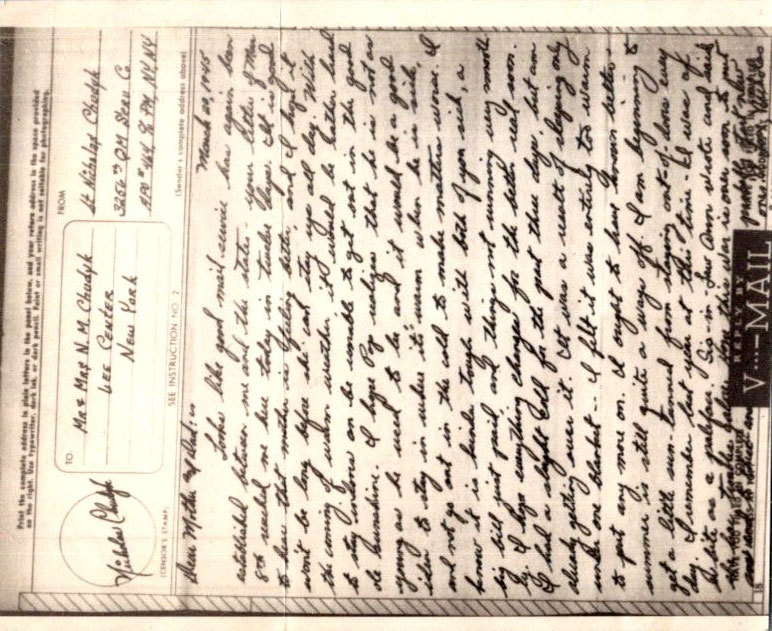 Print the complete address in plain letters in the panel below, and your return address in the space provided
on the right. Use typewriter, dark ink, or dark pencil. Faint or small writing is not suitable for photographing.
TO
Mr & Mrs N. M. Chudyk
Lee Center
New York
FROM
Lt Nicholas Chudyk
3256th QM Serv Co.
APO #464 % PM, NY NY
Nicholas Chudyk
(CENSOR'S STAMP)
SEE INSTRUCTION NO. 2
(Sender's complete address above)
March 20, 1945
Dear Mother and Dad:
Looks like good mail service has again been
established between me and the states. your letter of Mar
8th reached me here today in twelve days. It is good
to hear that mother is feeling better, and I hope it
won't be long before she can stay up all day. With
the coming of warm weather, it would be rather hard
to stay indoors an be unable to get out in the good
ole sunshine. I hope Pop realizes that he is not as
young as he used to be and it would be a good
idea to stay in where it's warm when he is sick,
and not go out in the cold to make matters worse. I
know it is kinda tough with both of you sick, a
big bill just paid, and things not running very smooth
ly. I hope everything changes for the better real soon.
I had a slight cold for the past three days, but am
already getting over it. It was a result of sleeping only
under one blanket -- I felt it was entirely too warm
to put any more on. I ought to have known better:
summer is still quite a ways off. I am beginning to
get a little sun-tanned from staying out-of-doors every
day. I remember last year at this time I was
white as a paleface. Sis-in-law Ann wrote and said
this war is over soon to put
an end to
HAVE YOU FILLED IN COMPLETE
REPLY BY
V···—MAIL
HAVE YOU FILLED IN COMPLETE
Nicholas